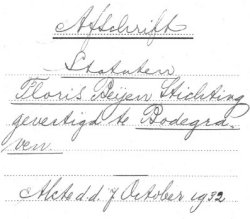 Afschrift
Statuten
Floris Beijen Stichting
gevestigd te Bodegra-
ven.
Akte d.d. 7 October 1932